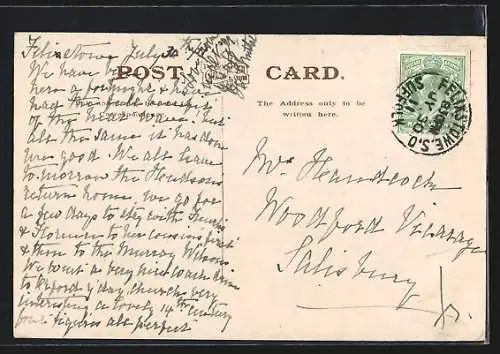 Felixstowe July 30th
We have been
here a fortnight & have
had the
of the heat wave. but
all the same it has done
me good. We all leave
to-morrow the Hendsons
return home. We go for
a few days to stay with
& Florence to her cousins first
& then to the Murray Wilsons
We went a very nice coach drive
to Orford yday, church very
interesting a lovely 14th century
four figures all perfect
POST CARD.
The Address only to be
written here.
FELIXSTOWE S.O.
SUFFOLK
JY 30
Mr Handcock
Woodford Vicarage
Salisbury